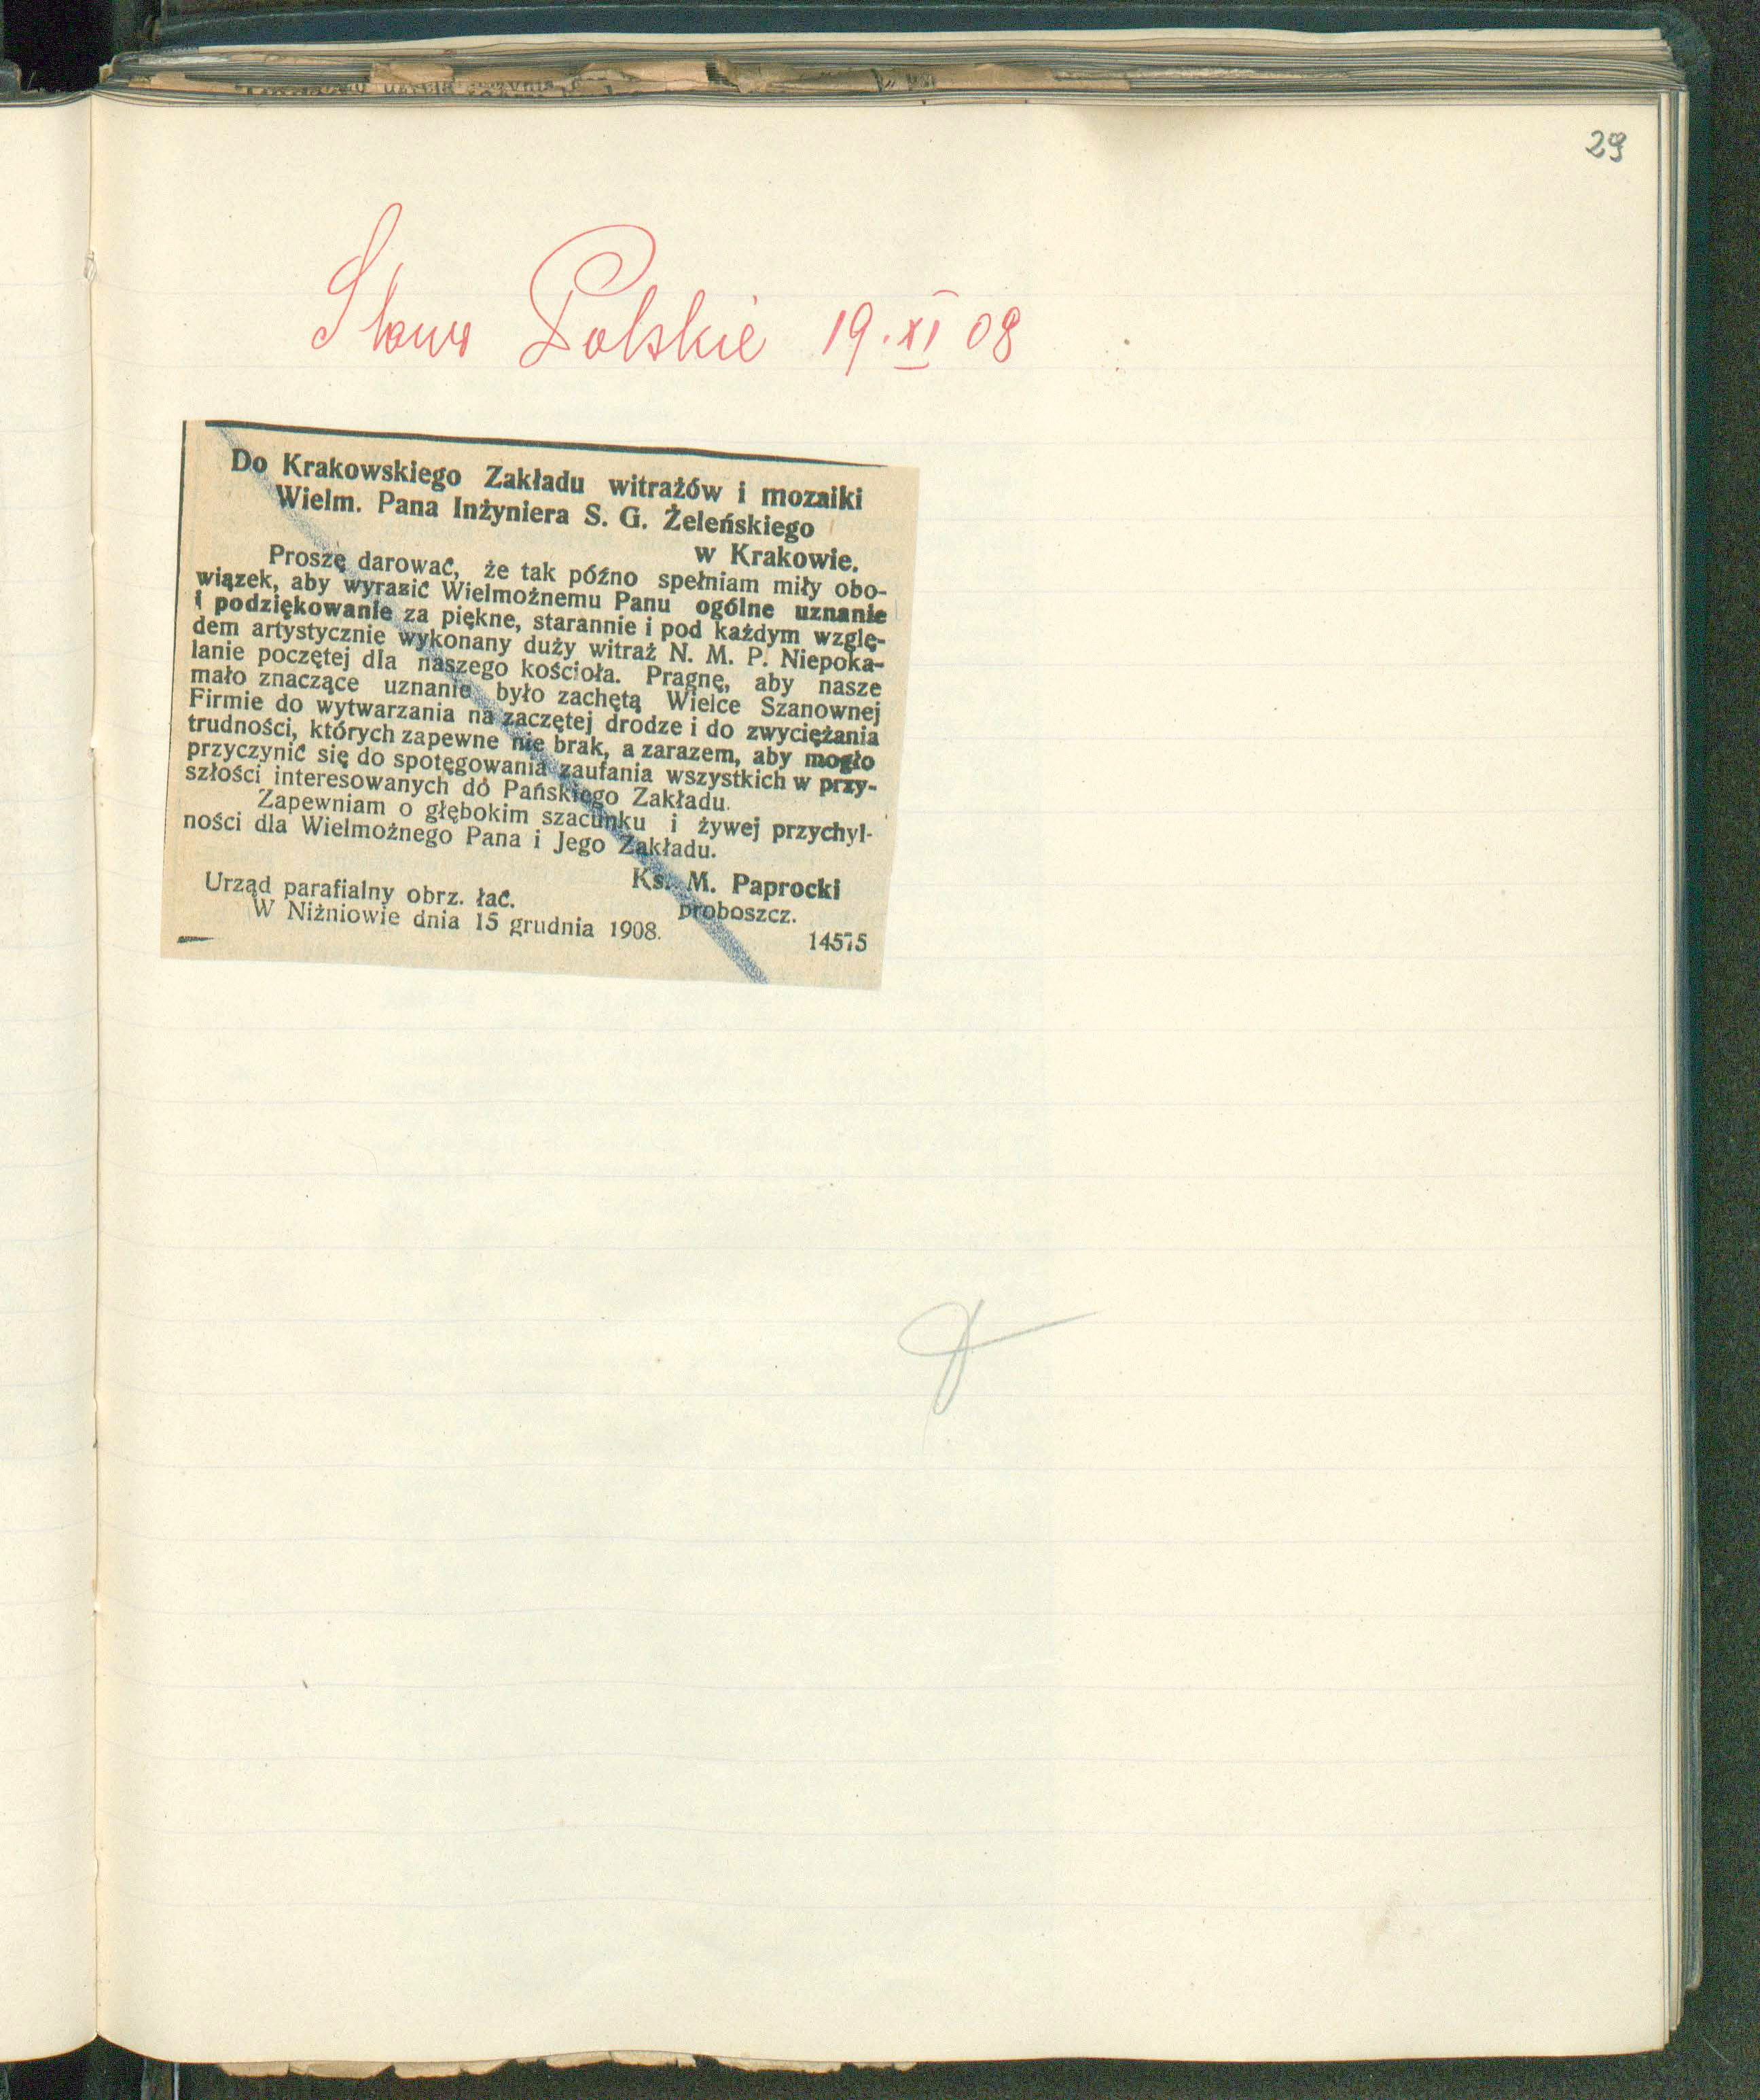 29
Słowo Polskie 19. XI 08
Do Krakowskiego Zakładu witrażów i mozaiki
Wielm. Pana Inżyniera S. G. Żeleńskiego
w Krakowie.
Proszę darować, że tak późno spełniam miły obo-
wiązek, aby wyrazić Wielmożnemu Panu ogólne uznanie
i podziękowanie za piękne, starannie i pod każdym wzglę-
dem artystycznie wykonany duży witraż N. M. P. Niepoka-
lanie poczętej dla naszego kościoła. Pragnę, aby nasze
mało znaczące uznanie było zachętą Wielce Szanownej
Firmie do wytwarzania na zaczętej drodze i do zwyciężania
trudności, których zapewne nie brak, a zarazem, aby mogło
przyczynić się do spotęgowania zaufania wszystkich w przy-
szłości interesowanych do Pańskiego Zakładu.
Zapewniam o głębokim szacunku i żywej przychyl-
ności dla Wielmożnego Pana i Jego Zakładu.
Ks. M. Paprocki
proboszcz.
Urząd parafialny obrz. łać.
W Niżniowie dnia 15 grudnia 1908.
14575